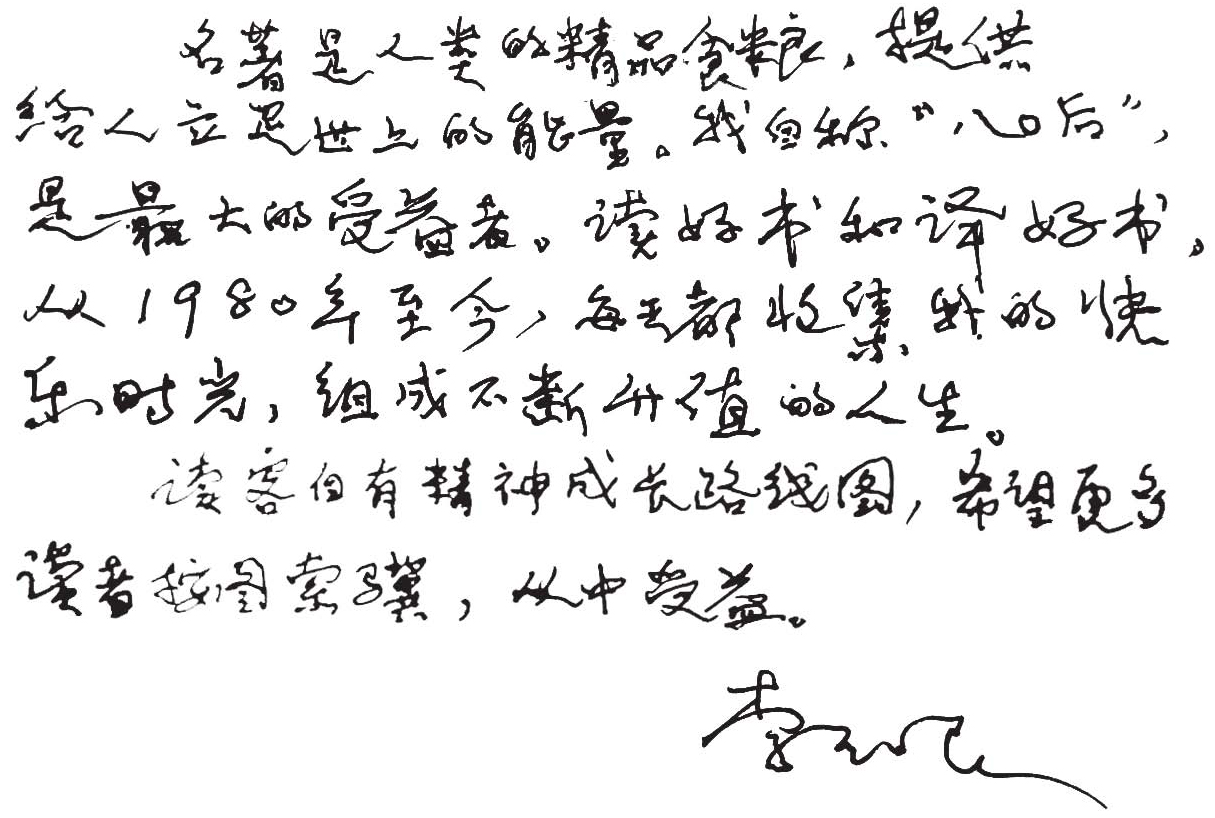 名著是人类的精品食粮，提供
给人立足世上的能量。我自称“八〇后”，
是最大的受益者。读好书和译好书，
从1980年至今，每天都收集我的快
乐时光，组成不断升值的人生。
读客自有精神成长路线图，希望更多
读者按图索骥，从中受益。